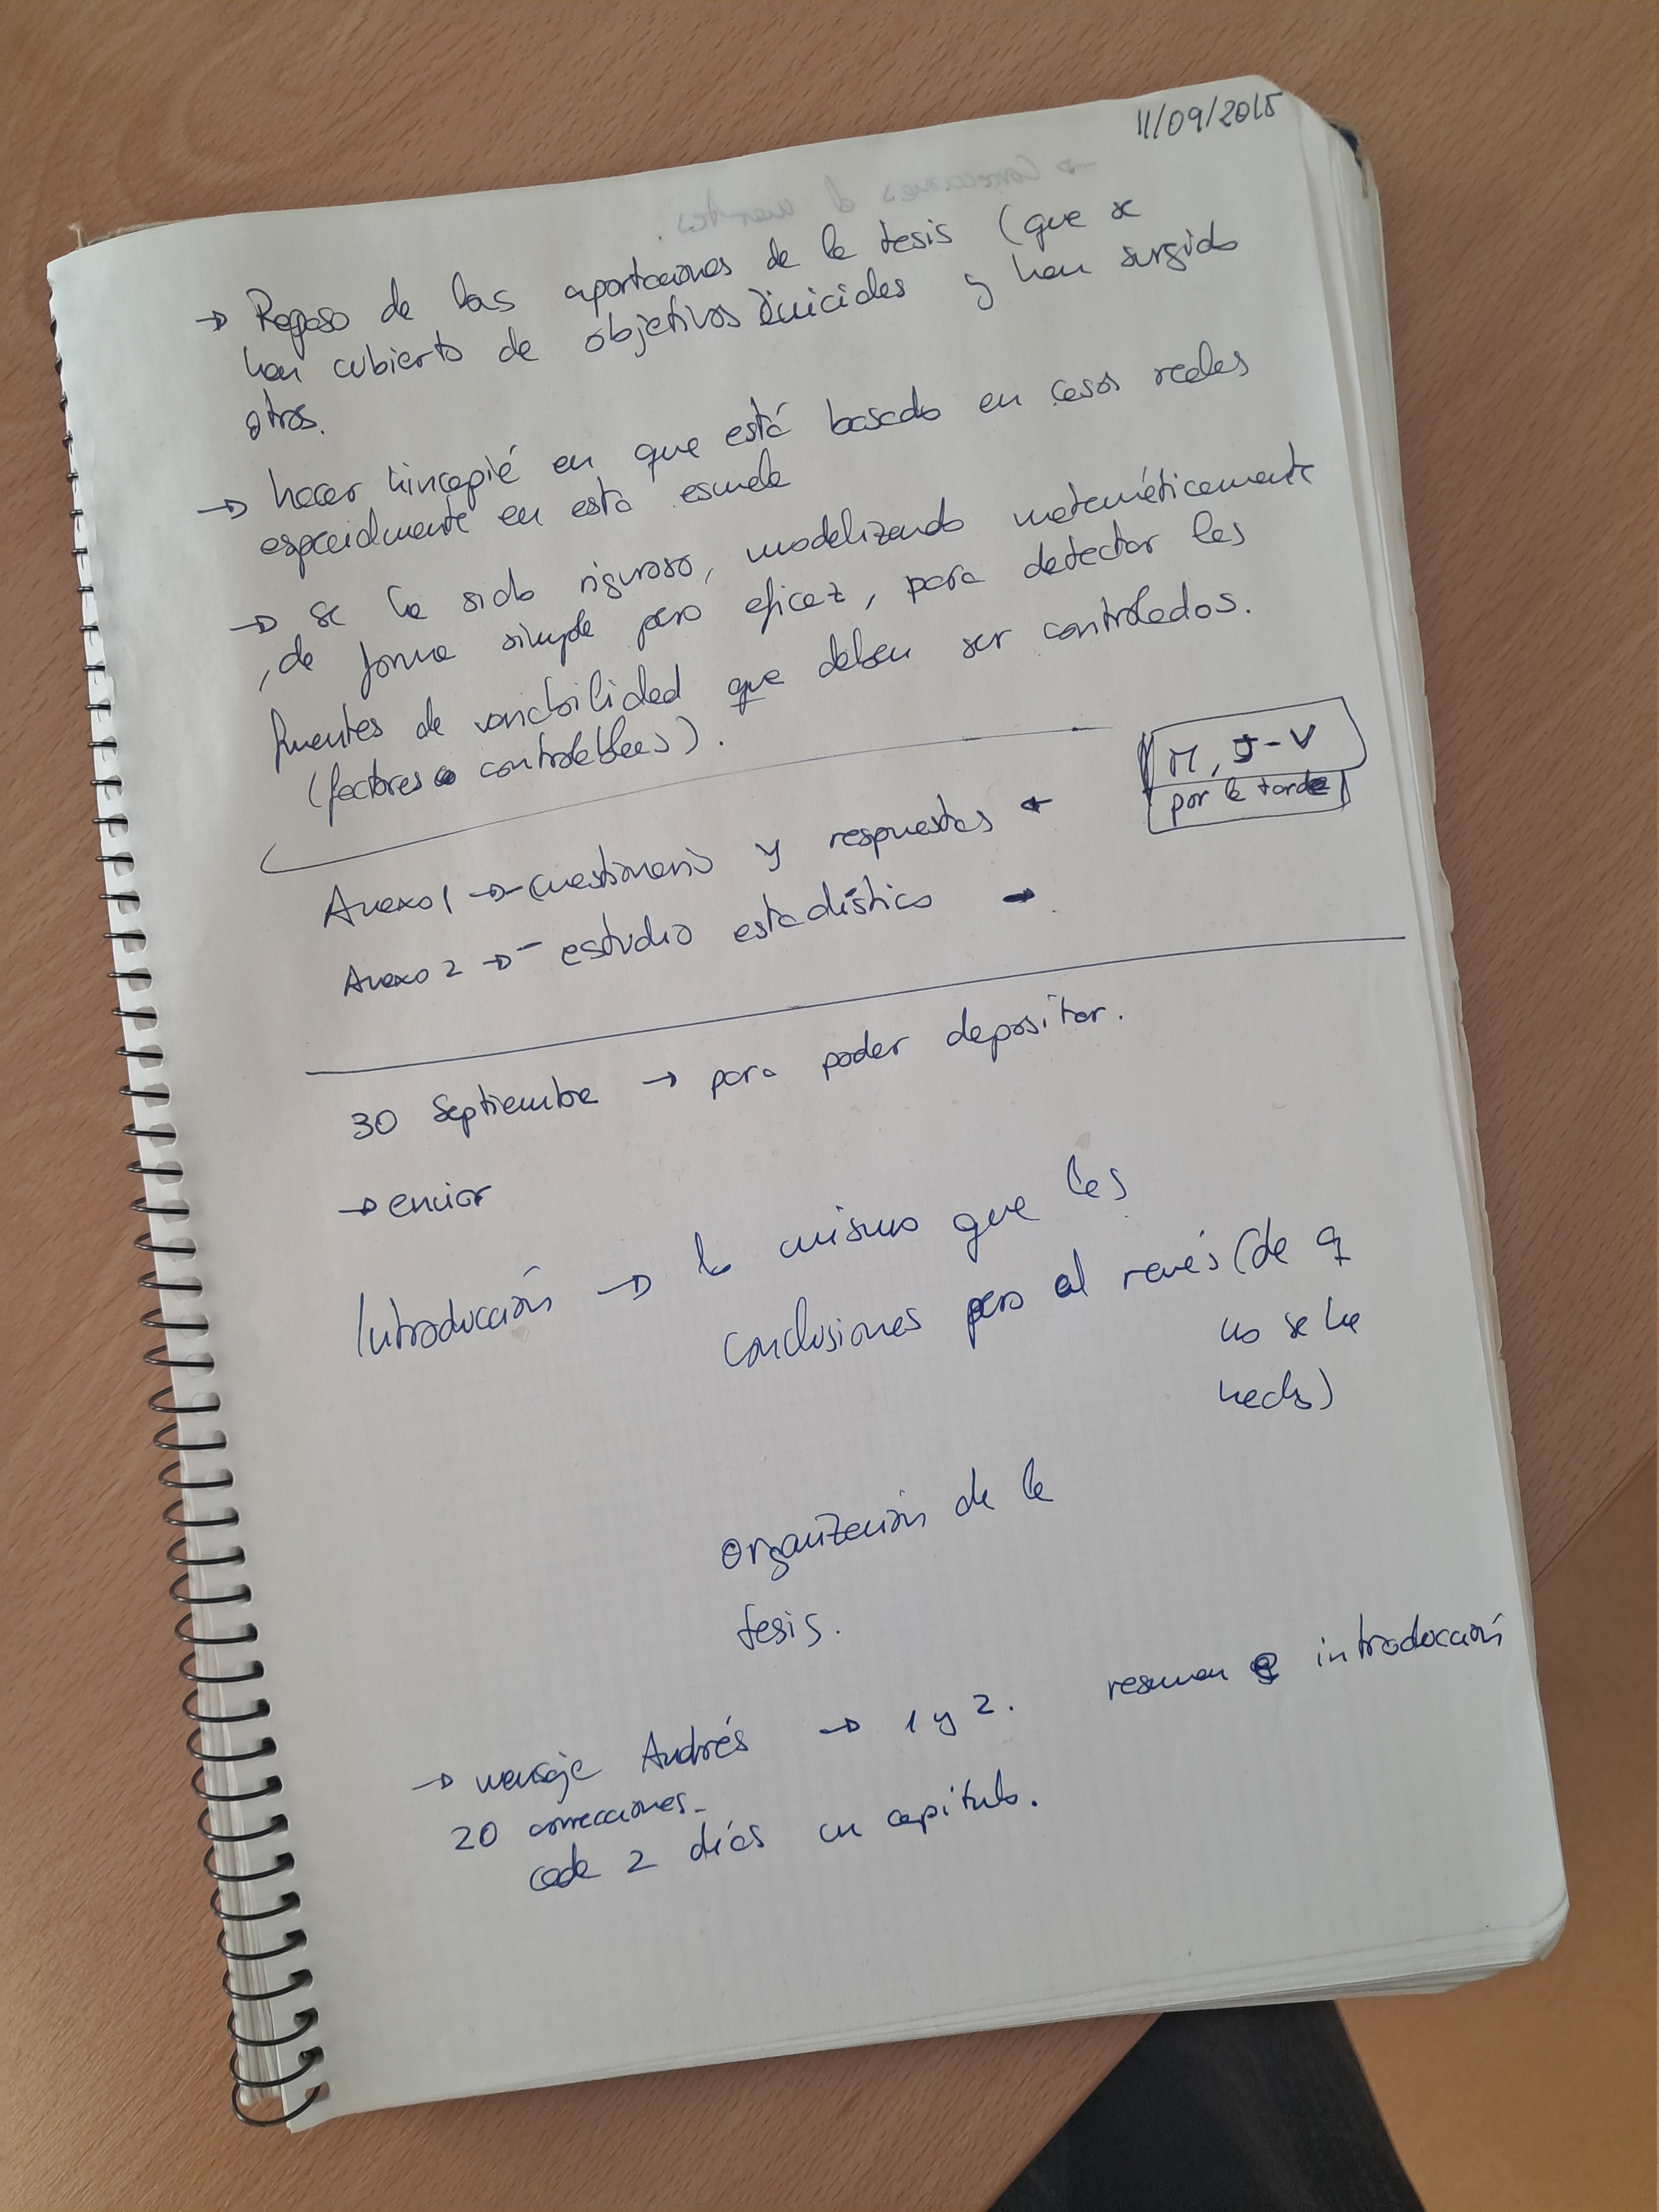 11/09/2015
→ Repaso de las aportaciones de la tesis (que se
han cubierto de objetivos iniciales y han surgido
otros.
→ hacer hincapié en que está basado en casos reales
especialmente en esta escuela
→ se ha sido riguroso, modelizando matemáticamente
, de forma simple pero eficaz, para detectar las
fuentes de variabilidad que deben ser controlados.
(factores controlables).
M, J-V
por la tarde
Anexo 1 → - cuestionario y respuestas ←
Anexo 2 → - estudio estadístico
30 Septiembre → para poder depositar.
→ enviar
Introducción → lo mismo que las
conclusiones pero al revés (de q
no se ha
hecho)
organización de la
tesis.
→ mensaje Andrés → 1 y 2. resumen introducción
20 correcciones.
cada 2 días un capítulo.